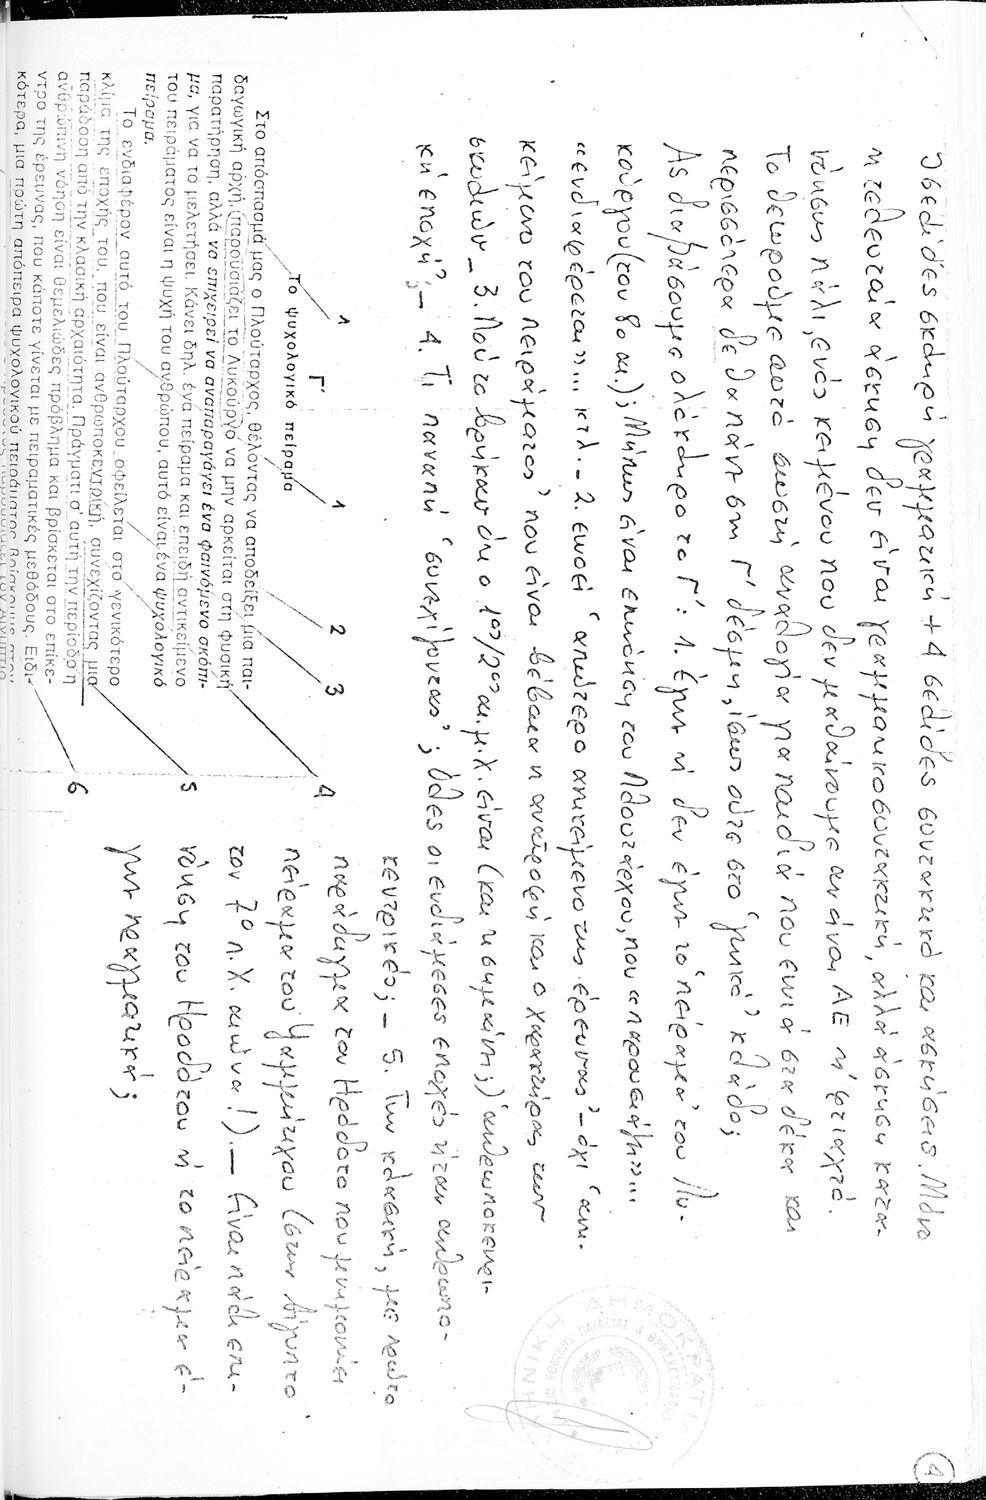 σελίδες σκληρή γραμματική + 4 σελίδες συντακτικό και ασκήσεις. Μόνο
η τελευταία άσκηση δεν είναι γραμματικοσυντακτική, αλλά άσκηση κατα-
νόησης πάλι, ενός κειμένου που δεν μαθαίνουμε αν είναι ΑΕ ή φτιαχτό.
Το θεωρούμε αυτό σωστή αναλογία για παιδιά που εννιά στα δέκα και
περισσότερα δε θα πάνε στη Γ' δέσμη, ίσως ούτε στο 'γενικό' κλάδο;
Ας διαβάσουμε ολόκληρο το Γ': 1. έγινε ή δεν έγινε το 'πείραμα' του Λυ-
κούργου (του 8ο αι.); Μήπως είναι επινόηση του Πλουτάρχου, που «παρουσιάζει»...
«ενδιαφέρεται»... κτλ. - 2. εννοεί 'απώτερο αντικείμενο της έρευνας' - όχι 'αντι-
κείμενο του πειράματος' που είναι βέβαια η ανατροφή και ο χαρακτήρας των
σκυλιών - 3. Πού το βρήκαν ότι ο 1ος/2ος αι. μ.Χ. είναι (και τι σημαίνει;) 'ανθρωποκεντρι-
κή εποχή'; - 4. Τι πάει να πει 'συνεχίζοντας'; Όλες οι ενδιάμεσες εποχές ήταν ανθρωπο-
κεντρικές; - 5. Την κλασική, με πρώτο
παράδειγμα τον Ηρόδοτο που μνημονεύει
πείραμα του Ψαμμήτιχου (στην Αίγυπτο
τον 7ο π.Χ. αιώνα!). — Είναι πάλι επι-
νόηση του Ηροδότου ή το πείραμα έ-
γινε πραγματικά;
Γ'
Το ψυχολογικό πείραμα
Στο απόσπασμά μας ο Πλούταρχος, θέλοντας να αποδείξει μια παι-
δαγωγική αρχή, παρουσιάζει το Λυκούργο να μην αρκείται στη φυσική
παρατήρηση, αλλά να επιχειρεί να αναπαραγάγει ένα φαινόμενο σκόπι-
μα, για να το μελετήσει. Κάνει δηλ. ένα πείραμα και επειδή αντικείμενο
του πειράματος είναι η ψυχή του ανθρώπου, αυτό είναι ένα ψυχολογικό
πείραμα.
Το ενδιαφέρον αυτό του Πλούταρχου οφείλεται στο γενικότερο
κλίμα της εποχής του, που είναι ανθρωποκεντρική, συνεχίζοντας μια
παράδοση από την κλασική αρχαιότητα. Πράγματι σ' αυτή την περίοδο η
ανθρώπινη νόηση είναι θεμελιώδες πρόβλημα και βρίσκεται στο επίκε-
ντρο της έρευνας, που κάποτε γίνεται με πειραματικές μεθόδους. Ειδι-
κότερα, μια πρώτη απόπειρα ψυχολογικού πειράματος βρίσκουμε στον
1
1
2
3
4
5
6
ΕΛΛΗΝΙΚΗ ΔΗΜΟΚΡΑΤΙΑ
4